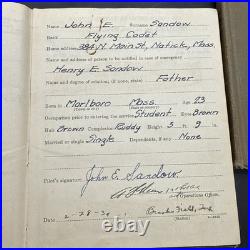 Name John E. Surname Sandow
Rank Flying Cadet
Home address 324 N. Main St, Natick, Mass.
Name and address of person to be notified in case of emergency
Henry E. Sandow
Name and degree of relation, (if none, state) Father
Born in Marlboro Mass. Age 23
Occupation prior to entering the service Student Brown
Hair Brown Complexion Ruddy Height 5 9 in.
Married or single Single Dependents, if any None
Pilot's signature John E. Sandow
Operations Officer.
Brooks Field, Tex
(Station)